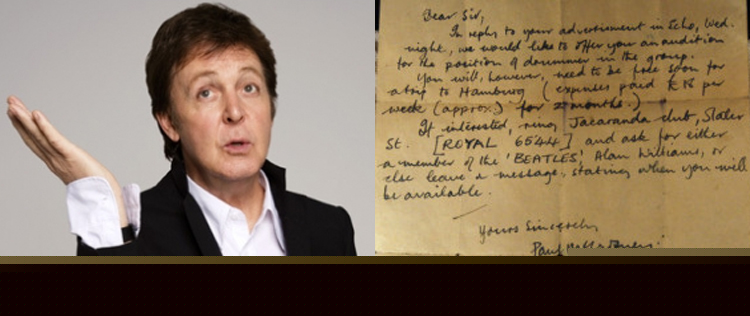 Dear Sir,
In reply to your advertisement in Echo, Wed.
night, we would like to offer you an audition
for the position of drummer in the group.
You will, however, need to be free soon for
a trip to Hamburg (expenses paid £18 per
week (approx.) for 2 months.)
If interested, ring Jacaranda club, Slater
St. [ROYAL 6544] and ask for either
a member of the 'BEATLES', Alan Williams, or
else leave a message, stating when you will
be available.
Yours Sincerely
Paul McCartney.